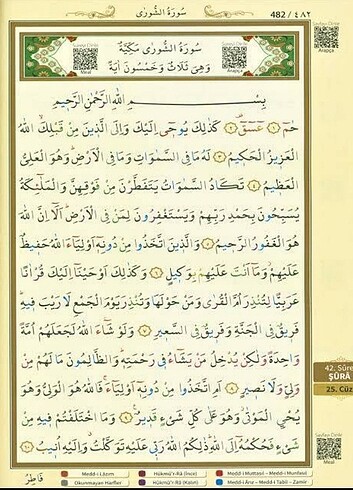 سُورَةُ الشُّورٰى
482 / ٤٨٢
سُورَةُ الشُّورٰى مَكِّيَّةٌ
وَهِيَ ثَلَاثٌ وَخَمْسُونَ اٰيَةً
Meal
Arapça
Arapça
بِسْمِ اللّٰهِ الرَّحْمٰنِ الرَّحٖيمِ
حٰمٓ ١ عٓسٓقٓ ٢ كَذٰلِكَ يُوحٖٓي اِلَيْكَ وَاِلَى الَّذٖينَ مِنْ قَبْلِكَ اللّٰهُ
الْعَزٖيزُ الْحَكٖيمُ ٣ لَهُ مَا فِي السَّمٰوَاتِ وَمَا فِي الْاَرْضِ وَهُوَ الْعَلِيُّ
الْعَظٖيمُ ٤ تَكَادُ السَّمٰوَاتُ يَتَفَطَّرْنَ مِنْ فَوْقِهِنَّ وَالْمَلٰٓئِكَةُ
يُسَبِّحُونَ بِحَمْدِ رَبِّهِمْ وَيَسْتَغْفِرُونَ لِمَنْ فِي الْاَرْضِ اَلَٓا اِنَّ اللّٰهَ
هُوَ الْغَفُورُ الرَّحٖيمُ ٥ وَالَّذٖينَ اتَّخَذُوا مِنْ دُونِهٖٓ اَوْلِيَٓاءَ اللّٰهُ حَفٖيظٌ
عَلَيْهِمْ وَمَٓا اَنْتَ عَلَيْهِمْ بِوَكٖيلٍ ٦ وَكَذٰلِكَ اَوْحَيْنَٓا اِلَيْكَ قُرْاٰنًا
عَرَبِيًّا لِتُنْذِرَ اُمَّ الْقُرٰى وَمَنْ حَوْلَهَا وَتُنْذِرَ يَوْمَ الْجَمْعِ لَا رَيْبَ فٖيهِ
فَرٖيقٌ فِي الْجَنَّةِ وَفَرٖيقٌ فِي السَّعٖيرِ ٧ وَلَوْ شَٓاءَ اللّٰهُ لَجَعَلَهُمْ اُمَّةً
وَاحِدَةً وَلٰكِنْ يُدْخِلُ مَنْ يَشَٓاءُ فٖي رَحْمَتِهٖ وَالظَّالِمُونَ مَا لَهُمْ مِنْ
وَلِيٍّ وَلَا نَصٖيرٍ ٨ اَمِ اتَّخَذُوا مِنْ دُونِهٖٓ اَوْلِيَٓاءَ فَاللّٰهُ هُوَ الْوَلِيُّ وَهُوَ
يُحْيِ الْمَوْتٰى وَهُوَ عَلٰى كُلِّ شَيْءٍ قَدٖيرٌ ٩ وَمَا اخْتَلَفْتُمْ فٖيهِ مِنْ
شَيْءٍ فَحُكْمُهُٓ اِلَى اللّٰهِ ذٰلِكُمُ اللّٰهُ رَبّٖي عَلَيْهِ تَوَكَّلْتُ وَاِلَيْهِ اُنٖيبُ ١٠
42. Sûre
ŞÛRÂ
25. Cüz
Meal
فَاطِرُ
Medd-i Lâzım
Hükmü'r-Râ (İnce)
Medd-i Muttasıl – Medd-i Munfasıl
Okunmayan Harfler
Hükmü'r-Râ (Kalın)
Medd-i Ârız – Medd-i Tabiî – Zamir